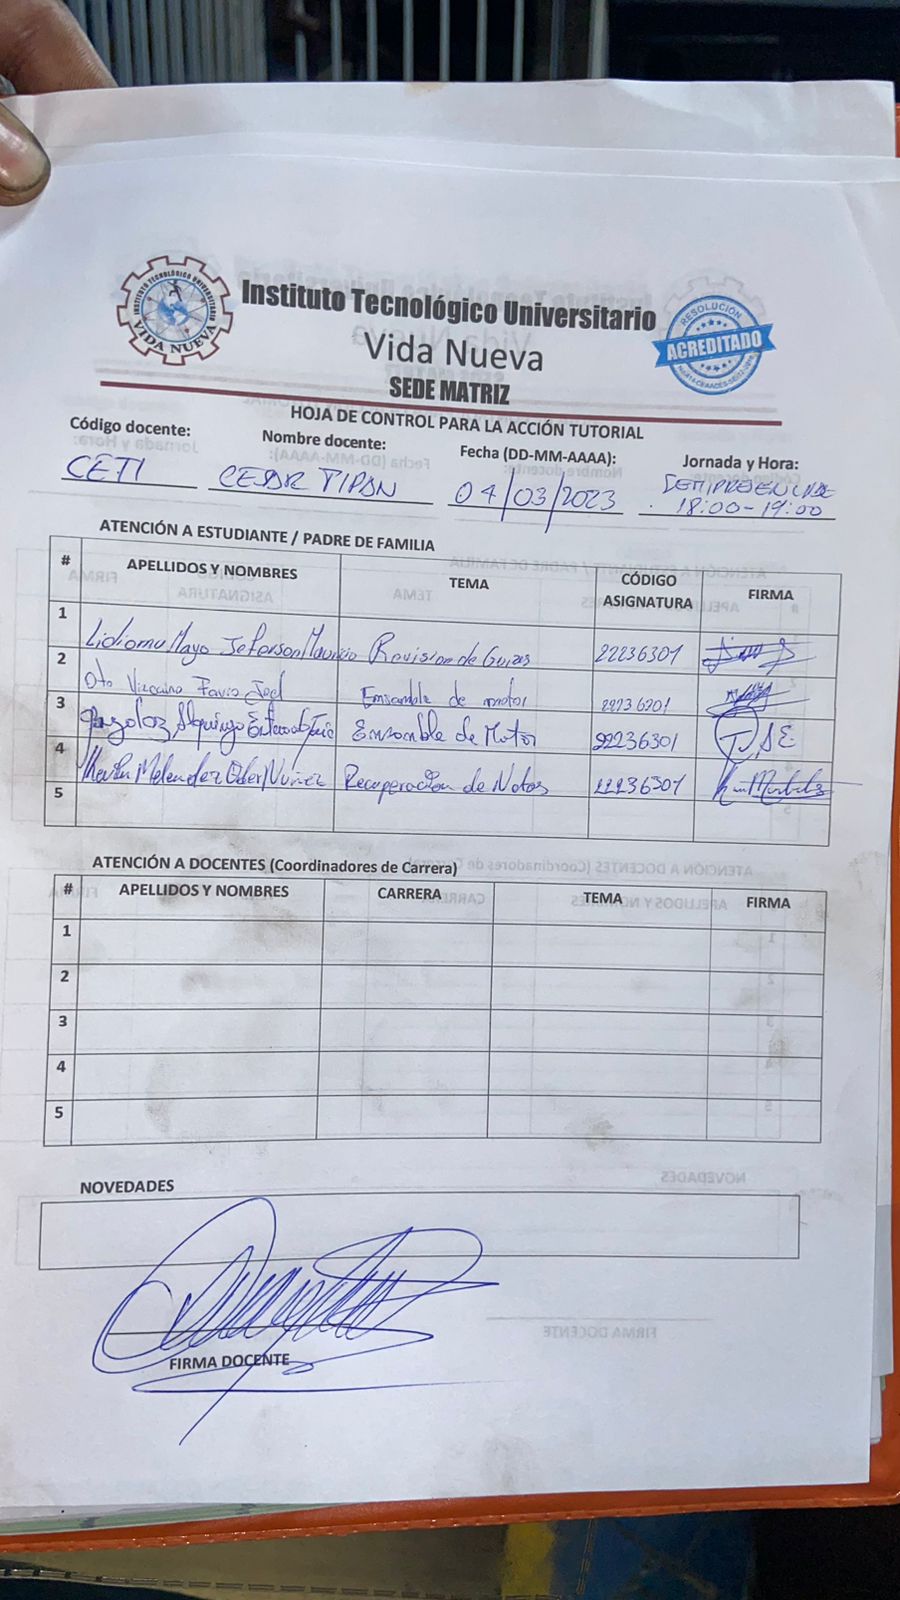 INSTITUTO TECNOLÓGICO UNIVERSITARIO
VIDA NUEVA
Instituto Tecnológico Universitario
Vida Nueva
SEDE MATRIZ
RESOLUCIÓN
ACREDITADO
HOJA DE CONTROL PARA LA ACCIÓN TUTORIAL
Código docente: Nombre docente: Fecha (DD-MM-AAAA): Jornada y Hora:
CETI CESAR TIPAN 04/03/2023 SEMIPRESENCIAL
18:00-19:00
ATENCIÓN A ESTUDIANTE / PADRE DE FAMILIA
# APELLIDOS Y NOMBRES TEMA CÓDIGO ASIGNATURA FIRMA
1 Mayo Jeferson Mauricio Revision de Guias 22236301
2 Vizcaino Favio Joel Ensamble de motor 22236301
3 Ensamble de Motor 22236301
4 Melendez Nuñez Recuperación de Notas 22236301
5
ATENCIÓN A DOCENTES (Coordinadores de Carrera)
# APELLIDOS Y NOMBRES CARRERA TEMA FIRMA
1
2
3
4
5
NOVEDADES
FIRMA DOCENTE